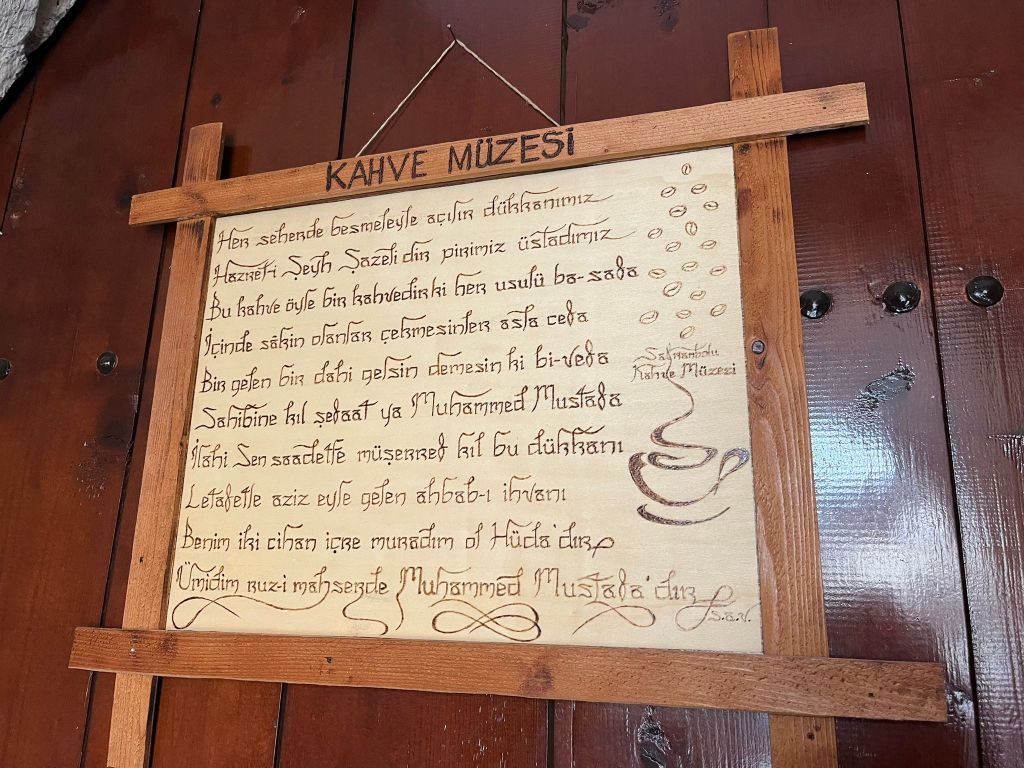 KAHVE MÜZESİ
Her seherde besmeleyle açılır dükkanımız
Hazret-i Şeyh Şazeli dir pirimiz üstadımız
Bu kahve öyle bir kahvedir ki her usulü ba-safa
İçinde sâkin olanlar çekmesinler asla cefa
Bir gelen bir dahi gelsin demesin ki bi-vefa
Sahibine kıl şefaat ya Muhammed Mustafa
İlâhi Sen saadetle müşerref kıl bu dükkânı
Letafetle aziz eyle gelen ahbab-ı ihvanı
Benim iki cihan içre muradım ol Hüda'dır
Ümidim ruz-i mahşerde Muhammed Mustafa'dır
s.a.v.
Safranbolu
Kahve Müzesi